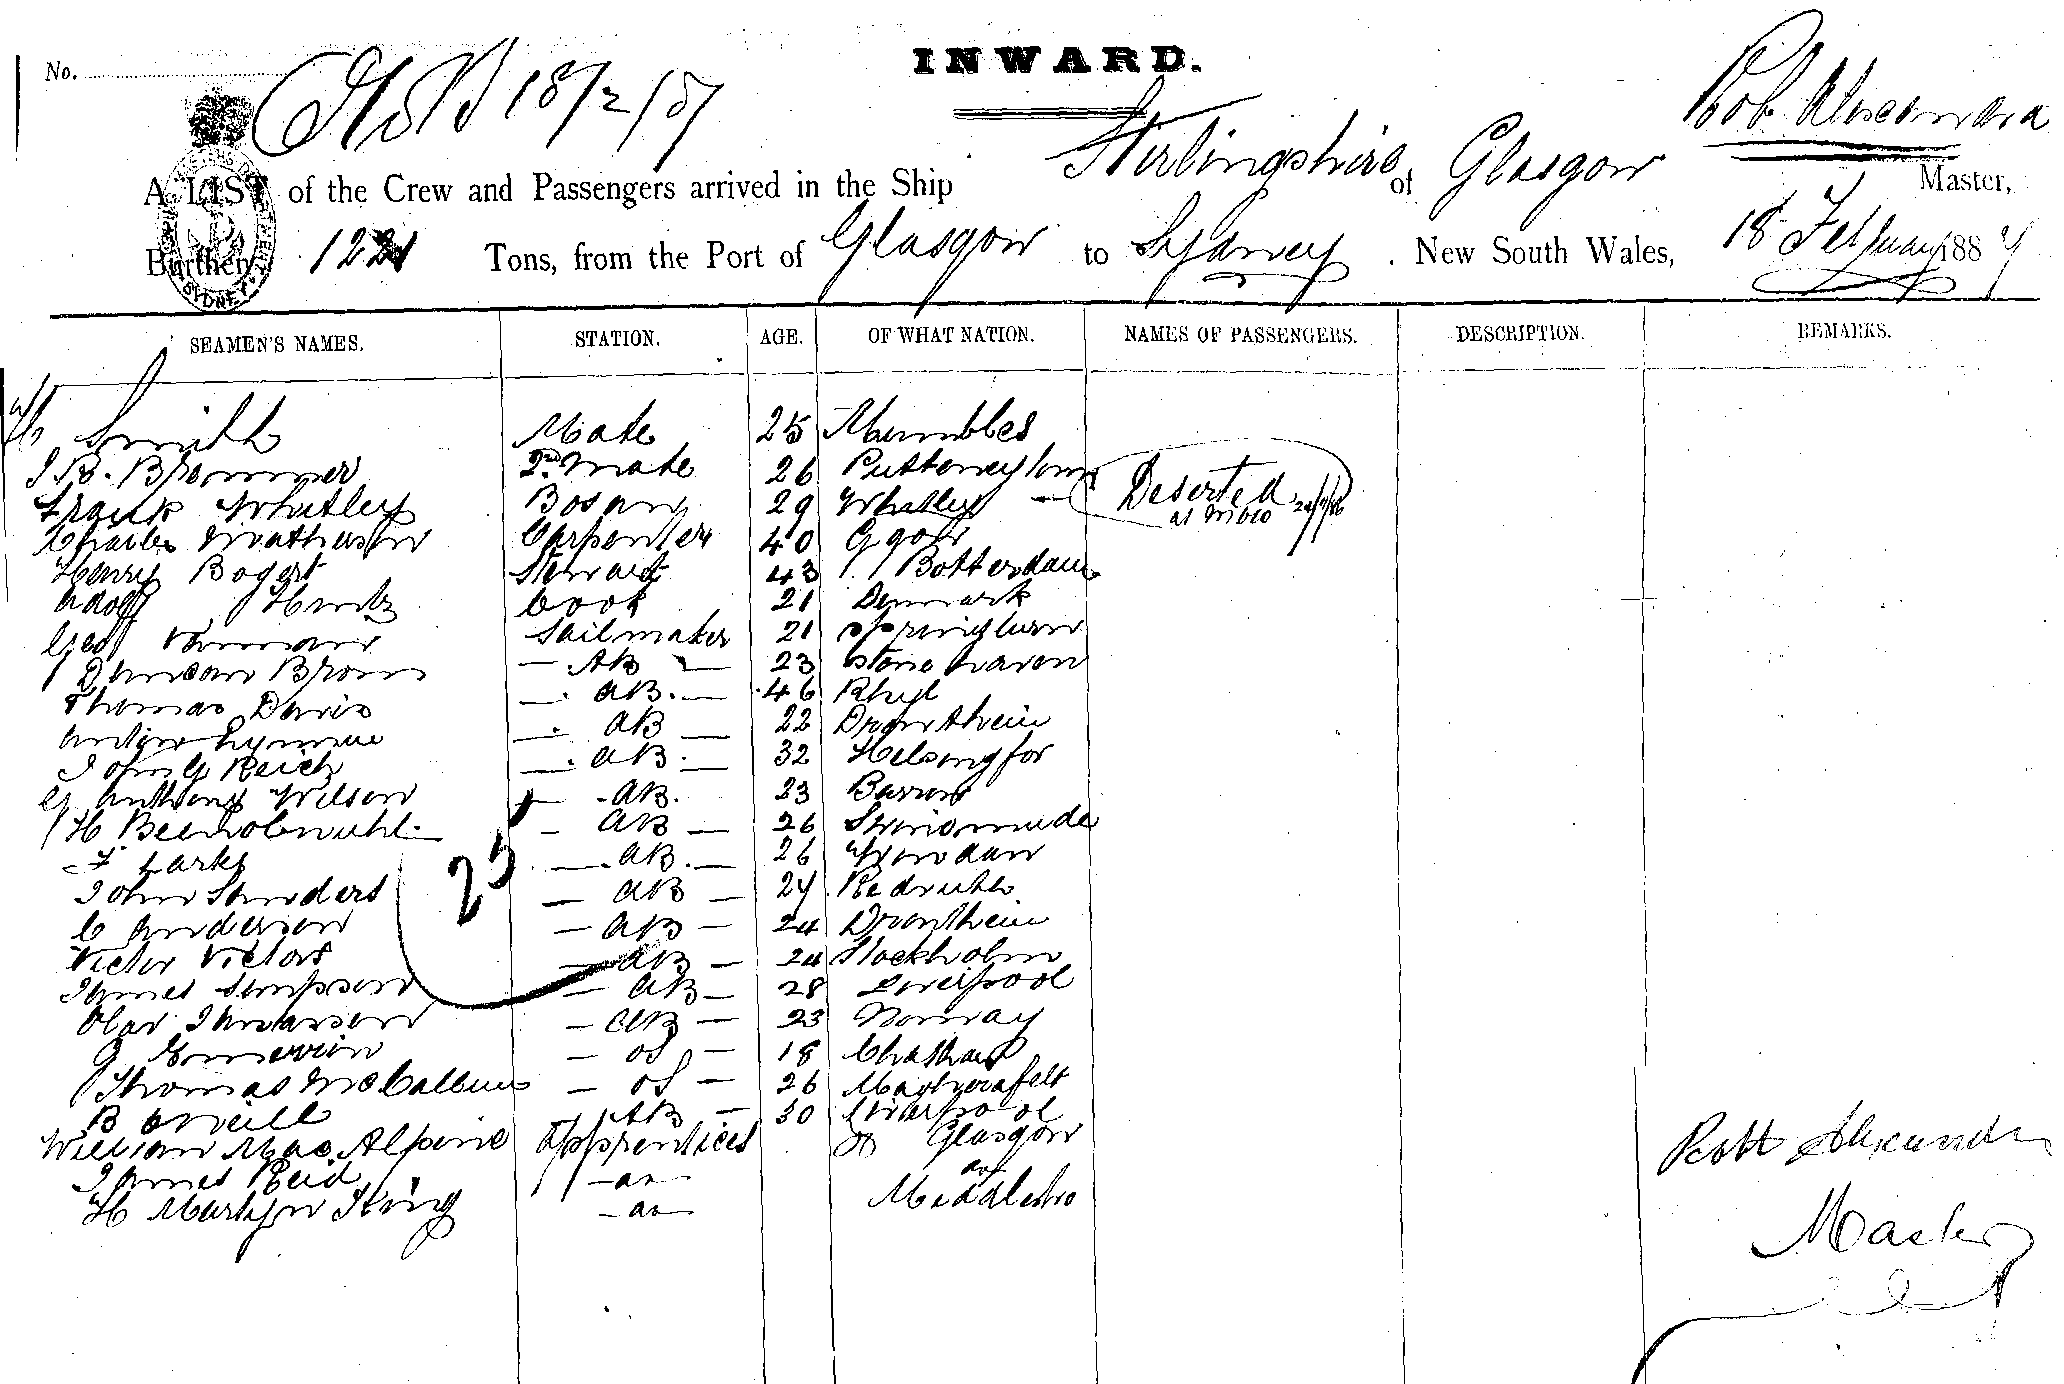 INWARD.
No.
18/2/87
Stirlingshire Glasgow Rob Alexander
A LIST of the Crew and Passengers arrived in the Ship of Master,
Burthen 1221 Tons, from the Port of Glasgow to Sydney. New South Wales, 18 February 1887
SEAMEN'S NAMES. STATION. AGE. OF WHAT NATION. NAMES OF PASSENGERS. DESCRIPTION. REMARKS.
Smith Mate 25 Mumbles
J B. Brommer 2nd Mate 26 Pulteneytown
Frank Whitley Bosun 29 Whitley — Deserted
Charles Mathewson Carpenter 40 Ggow
Henry Bogert Steward 43 Rotterdam
Adolf Cook 21 Denmark
Geo Sailmaker 21 Springburn
Duncan Brown — AB — 23 Stonehaven
Thomas Davis — AB. — 46 Rhyl
— AB — 22 Drontheim
John G Reich — AB. — 32 Helsingfor
G Anthony Wilson — AB. 23 Barrow
H — AB — 26 Swinemunde
F Larks — AB. — 26
John Sanders — AB — 24 Redruth
C Anderson — AB — 24 Drontheim
Victor Victors — AB — 24 Stockholm
James Simpson — AB — 28 Liverpool
Olav — AB — 23 Norway
25
— OS — 18 Chatham
Thomas McCallum — OS — 26 Magherafelt
B ONeill AB — 30 Liverpool
William MacAlpine Apprentices Glasgow
James Reid — do — do
H Martyn King — do —
Robt Alexander
Master